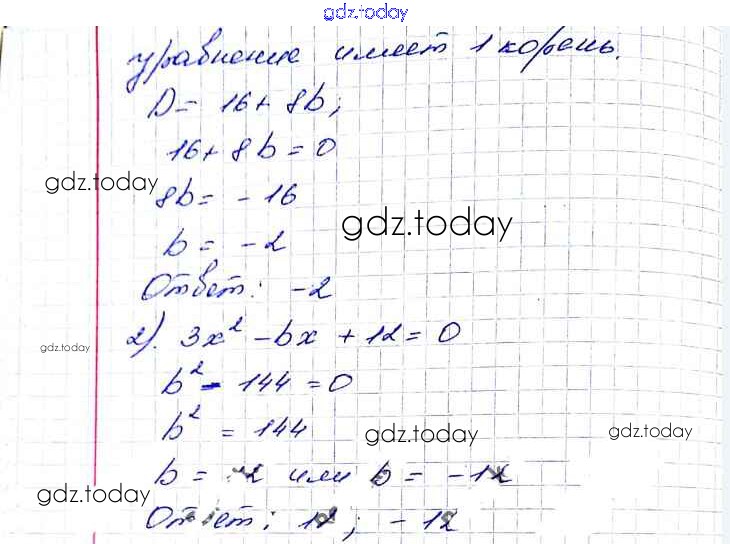 gdz.today
уравнение имеет 1 корень.
D = 16 + 8b;
16 + 8b = 0
gdz.today
8b = - 16
gdz.today
b = - 2
Ответ: -2
2). 3x² - bx + 12 = 0
gdz.today
b² - 144 = 0
b² = 144
gdz.today
gdz.today
b = 12 или b = - 12
gdz.today
Ответ: 12; - 12